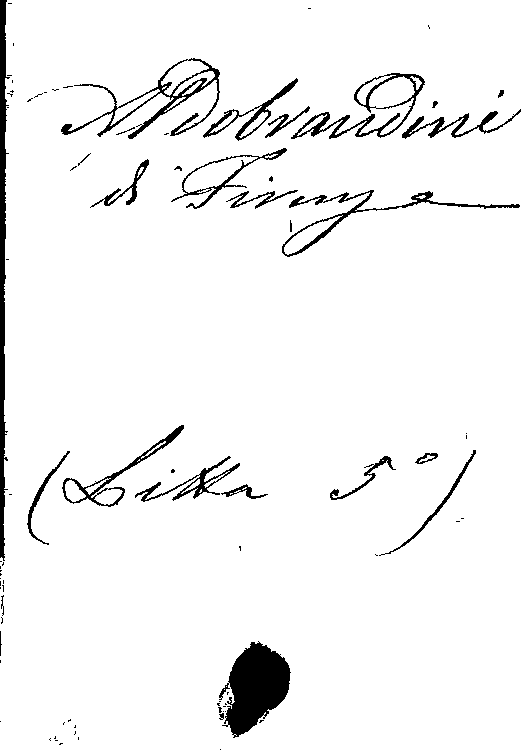 Aldobrandini
di Firenze
(Litta 5°)